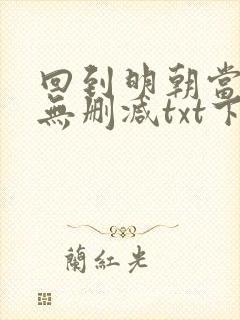 回到明朝當
無刪減txt下
蘭紅光